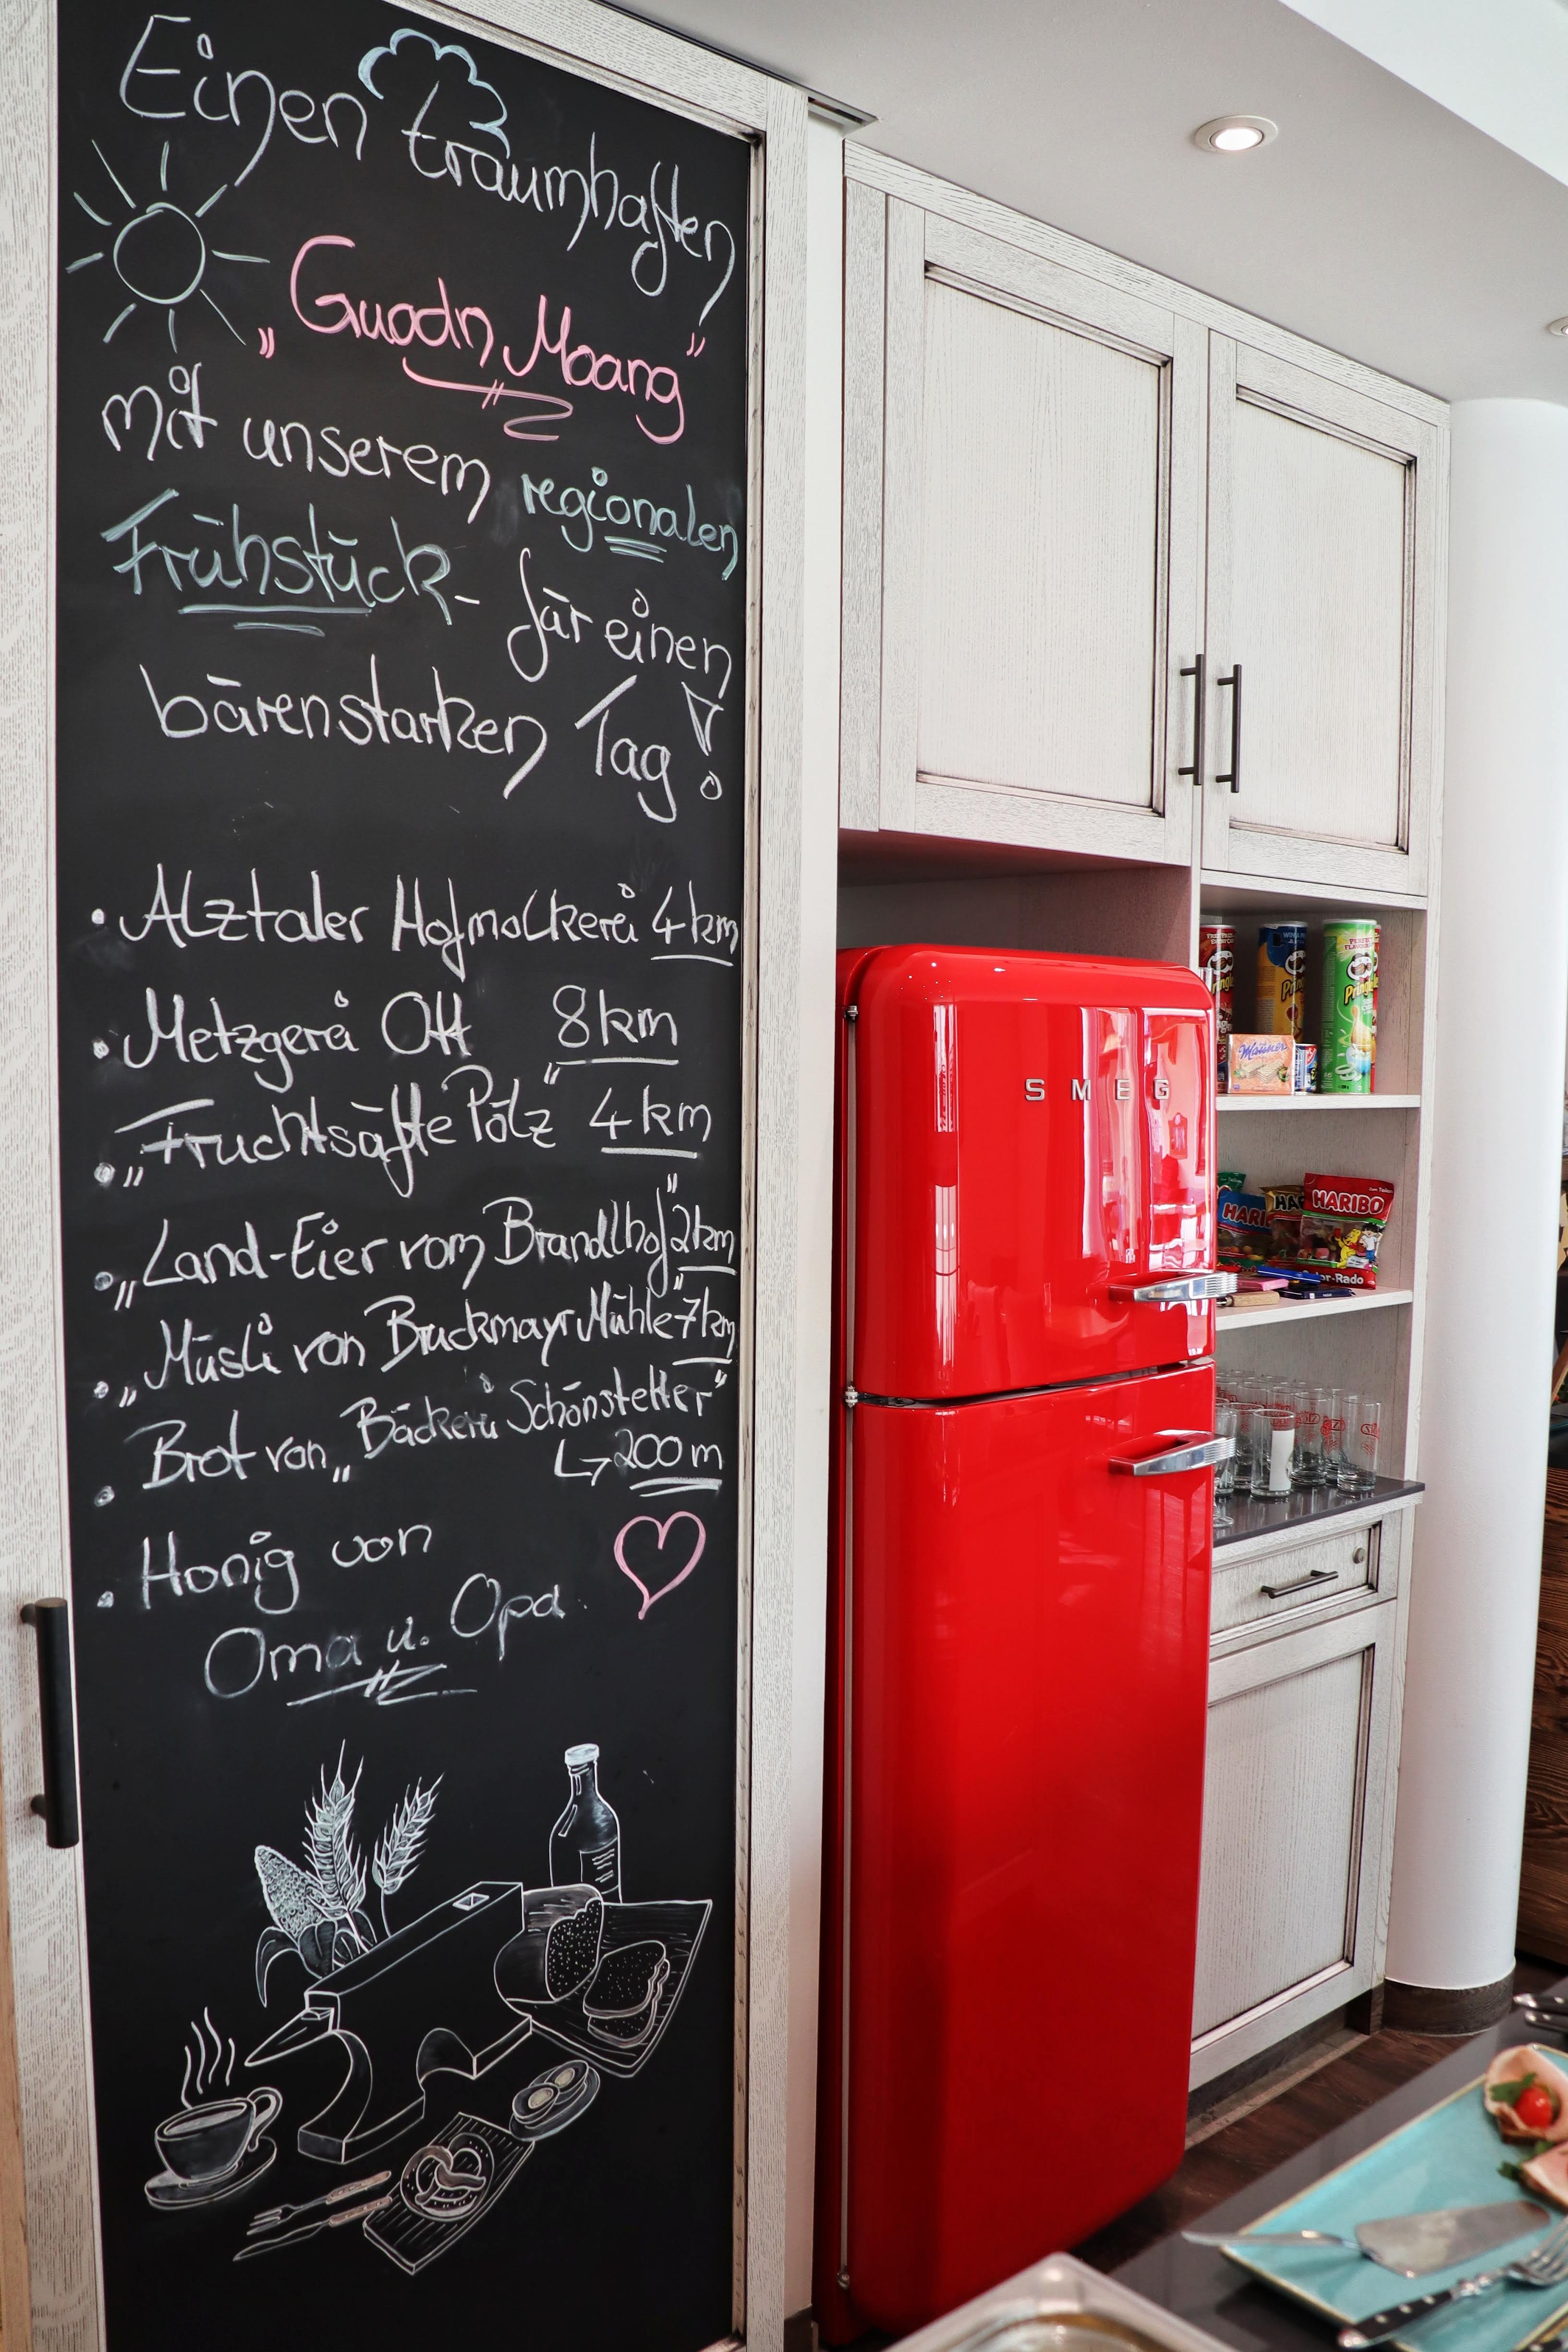 Einen traumhaften
„Guadn Moang"
mit unserem regionalen
Frühstück- für einen
bärenstarken Tag!
• Alztaler Hofmolkerei 4km
• Metzgerei Ott 8km
• „Fruchtsäfte Pölz" 4km
• „Land-Eier vom Brandlhof" 2km
• „Müsli von Bruckmayr Mühle" 7km
• Brot von „Bäckerei Schönstetter"
↳ 200m
• Honig von
Oma u. Opa.
SMEG
Pringles
Manner
HARIBO
HARI
HA
or-Rado